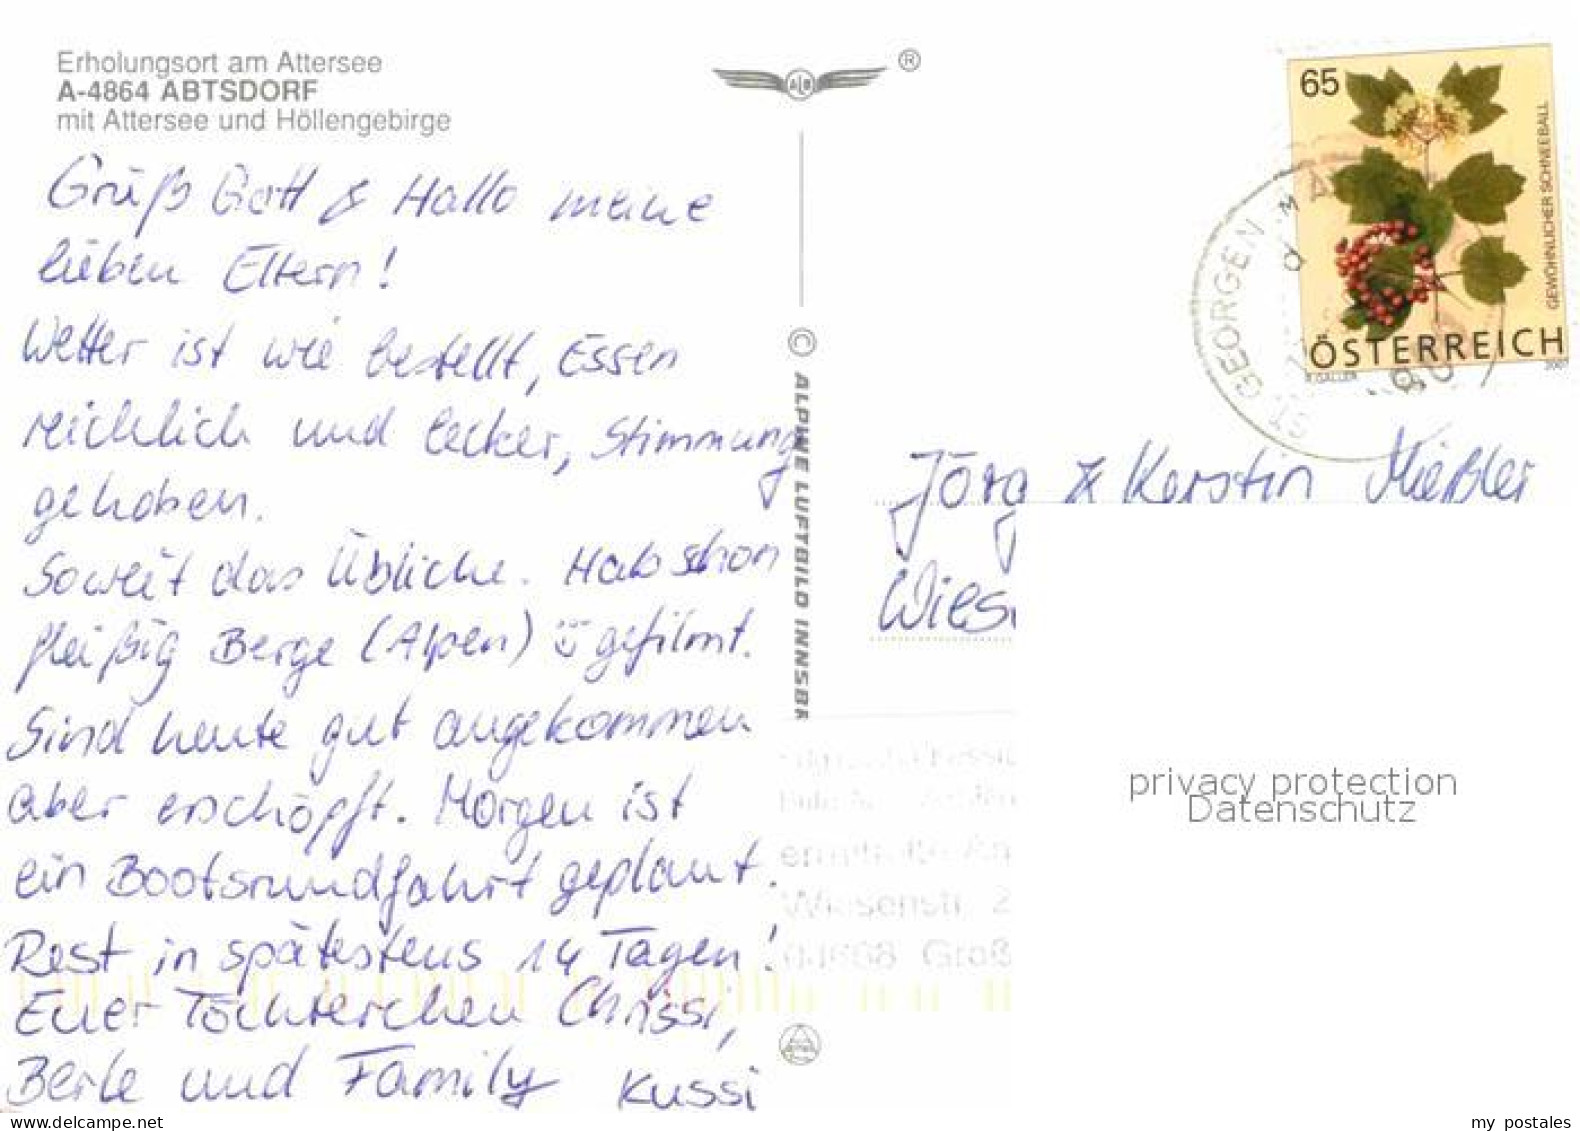 Erholungsort am Attersee
A-4864 ABTSDORF
mit Attersee und Höllengebirge
Grüß Gott & Hallo meine
lieben Eltern!
Wetter ist wie bestellt, Essen
reichlich und lecker, Stimmung
gehoben.
Soweit das Übliche. Hab schon
fleißig Berge (Alpen) gefilmt.
Sind heute gut angekommen
aber erschöpft. Morgen ist
ein Bootsrundfahrt geplant.
Rest in spätestens 14 Tagen!
Euer Töchterchen Chrissi,
Berle und Family Kussi
ALB
®
© ALPINE LUFTBILD INNSBR
65
GEWÖHNLICHER SCHNEEBALL
ÖSTERREICH
B. GALLER 2007
ST. GEORGEN
Jörg & Kerstin Mießler
Wies
Wiesenstr. 2
04668 Groß
privacy protection
Datenschutz
my postales